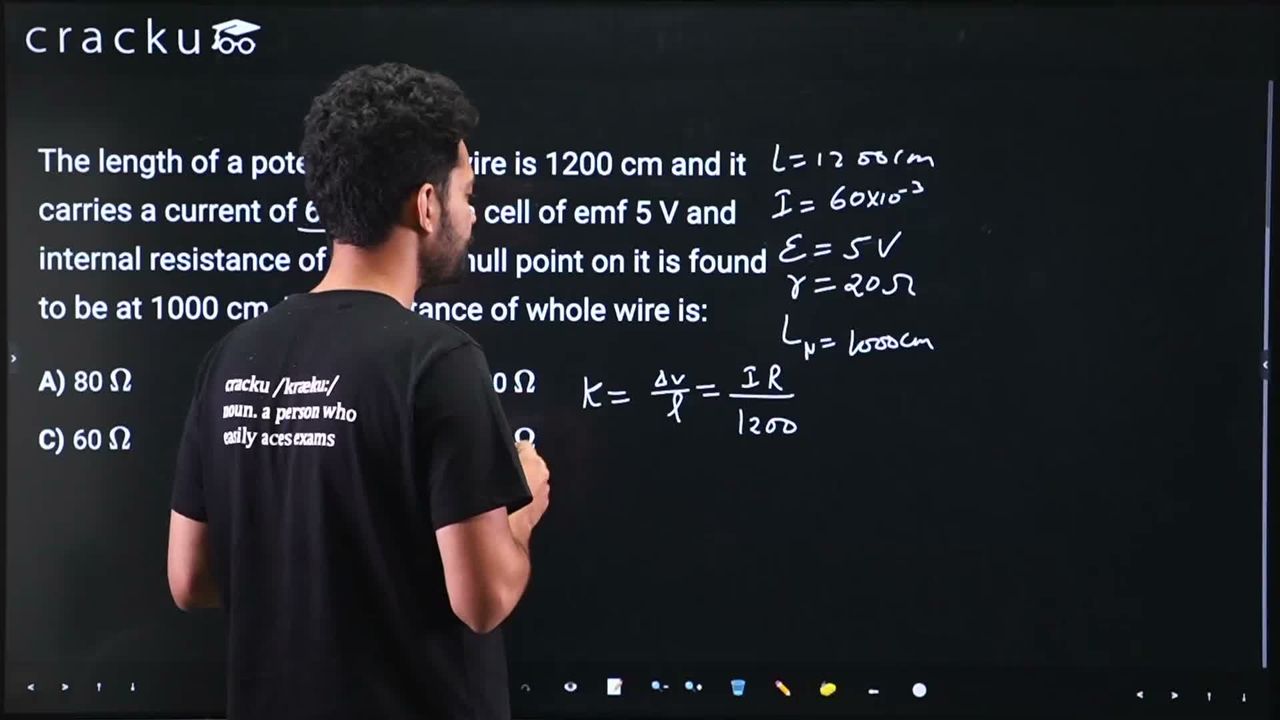 cracku
The length of a pote ire is 1200 cm and it
carries a current of 6 cell of emf 5 V and
internal resistance of null point on it is found
to be at 1000 cm tance of whole wire is:
A) 80 Ω 0 Ω
C) 60 Ω Ω
l = 1200cm
I = 60x10⁻³
ε = 5V
r = 20Ω
L_N = 1000cm
K = ΔV/l = IR/1200
cracku /kræku:/
noun. a person who
easily aces exams